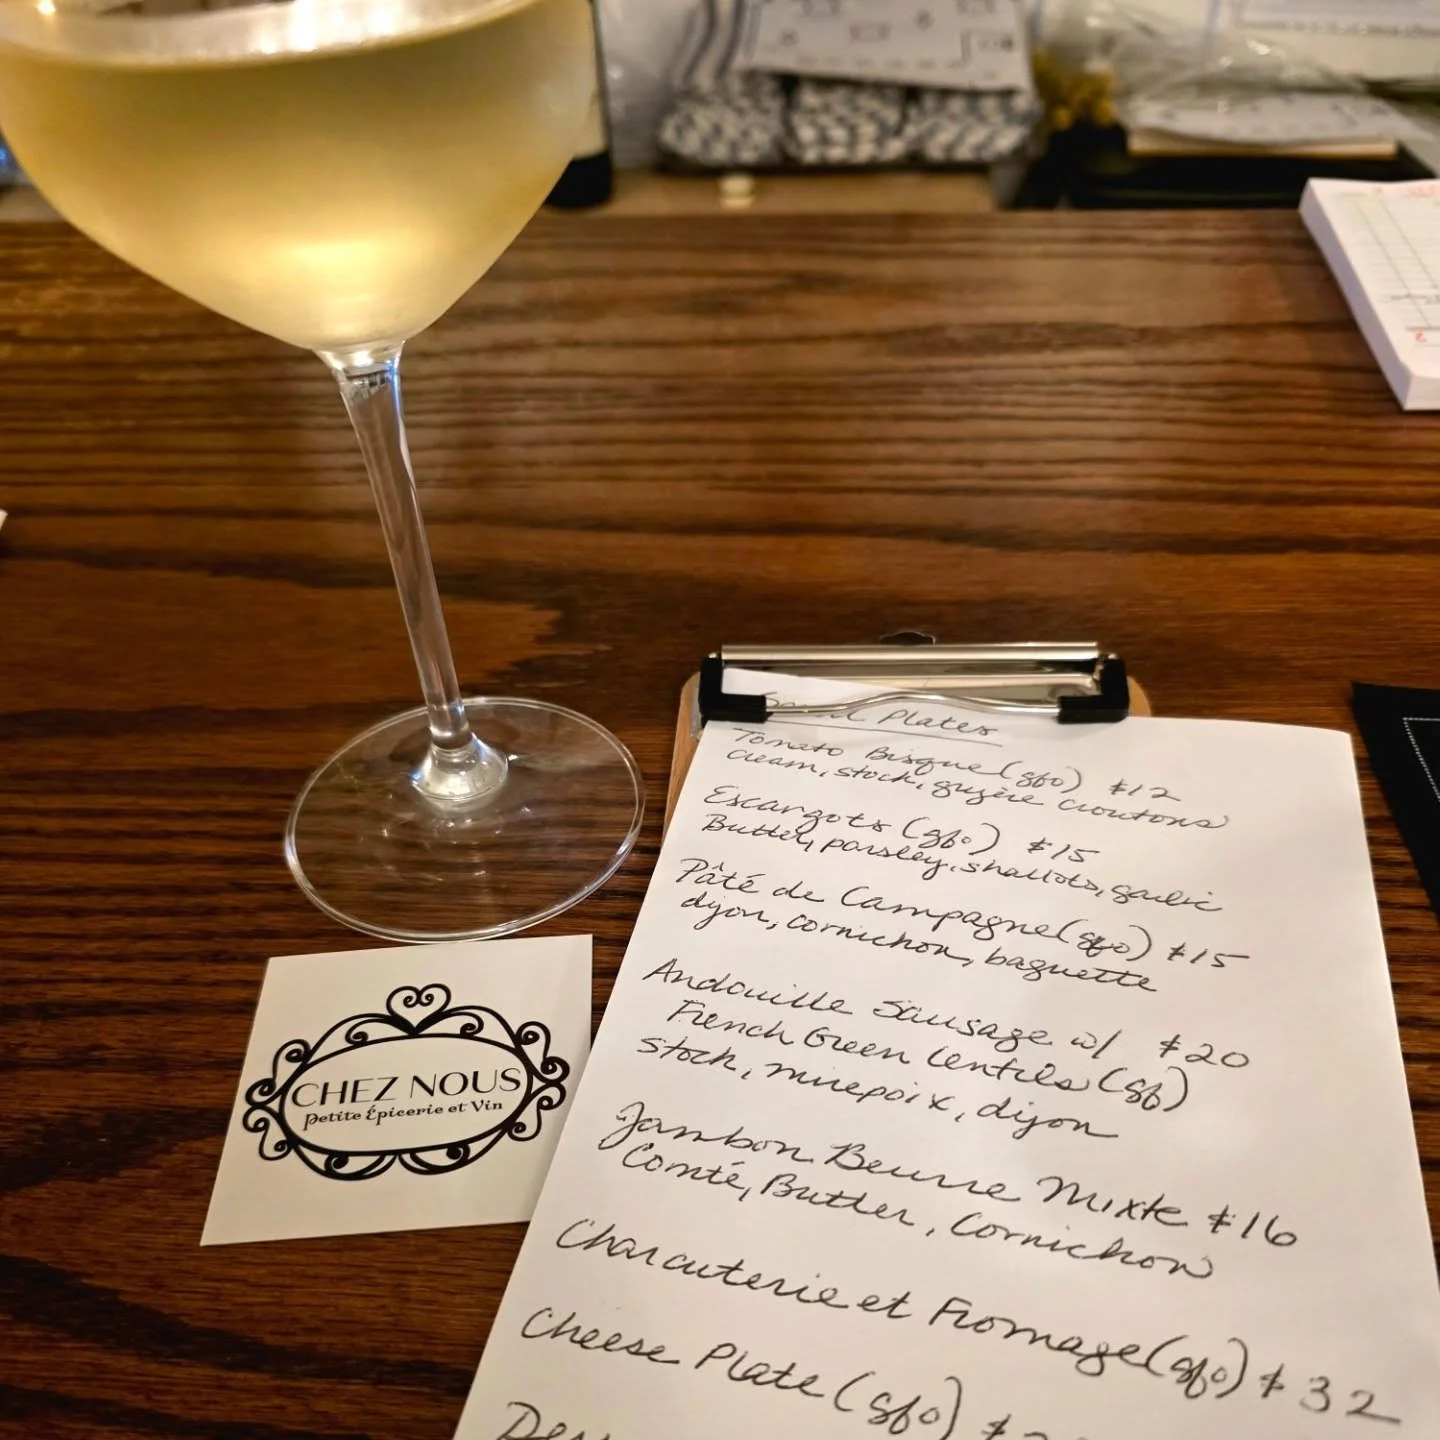 Plates
Tomato Bisque (gfo) $12
cream, stock, gruyère croutons
Escargots (gfo) $15
Butter, parsley, shallots, garlic
Pâté de Campagne (gfo) $15
dijon, cornichon, baguette
Andouille Sausage w/ $20
French Green Lentils (gf)
stock, mirepoix, dijon
Jambon Beurre Mixte $16
Comté, Butter, Cornichon
Charcuterie et Fromage (gfo) $32
Cheese Plate (gfo)
CHEZ NOUS
Petite Épicerie et Vin